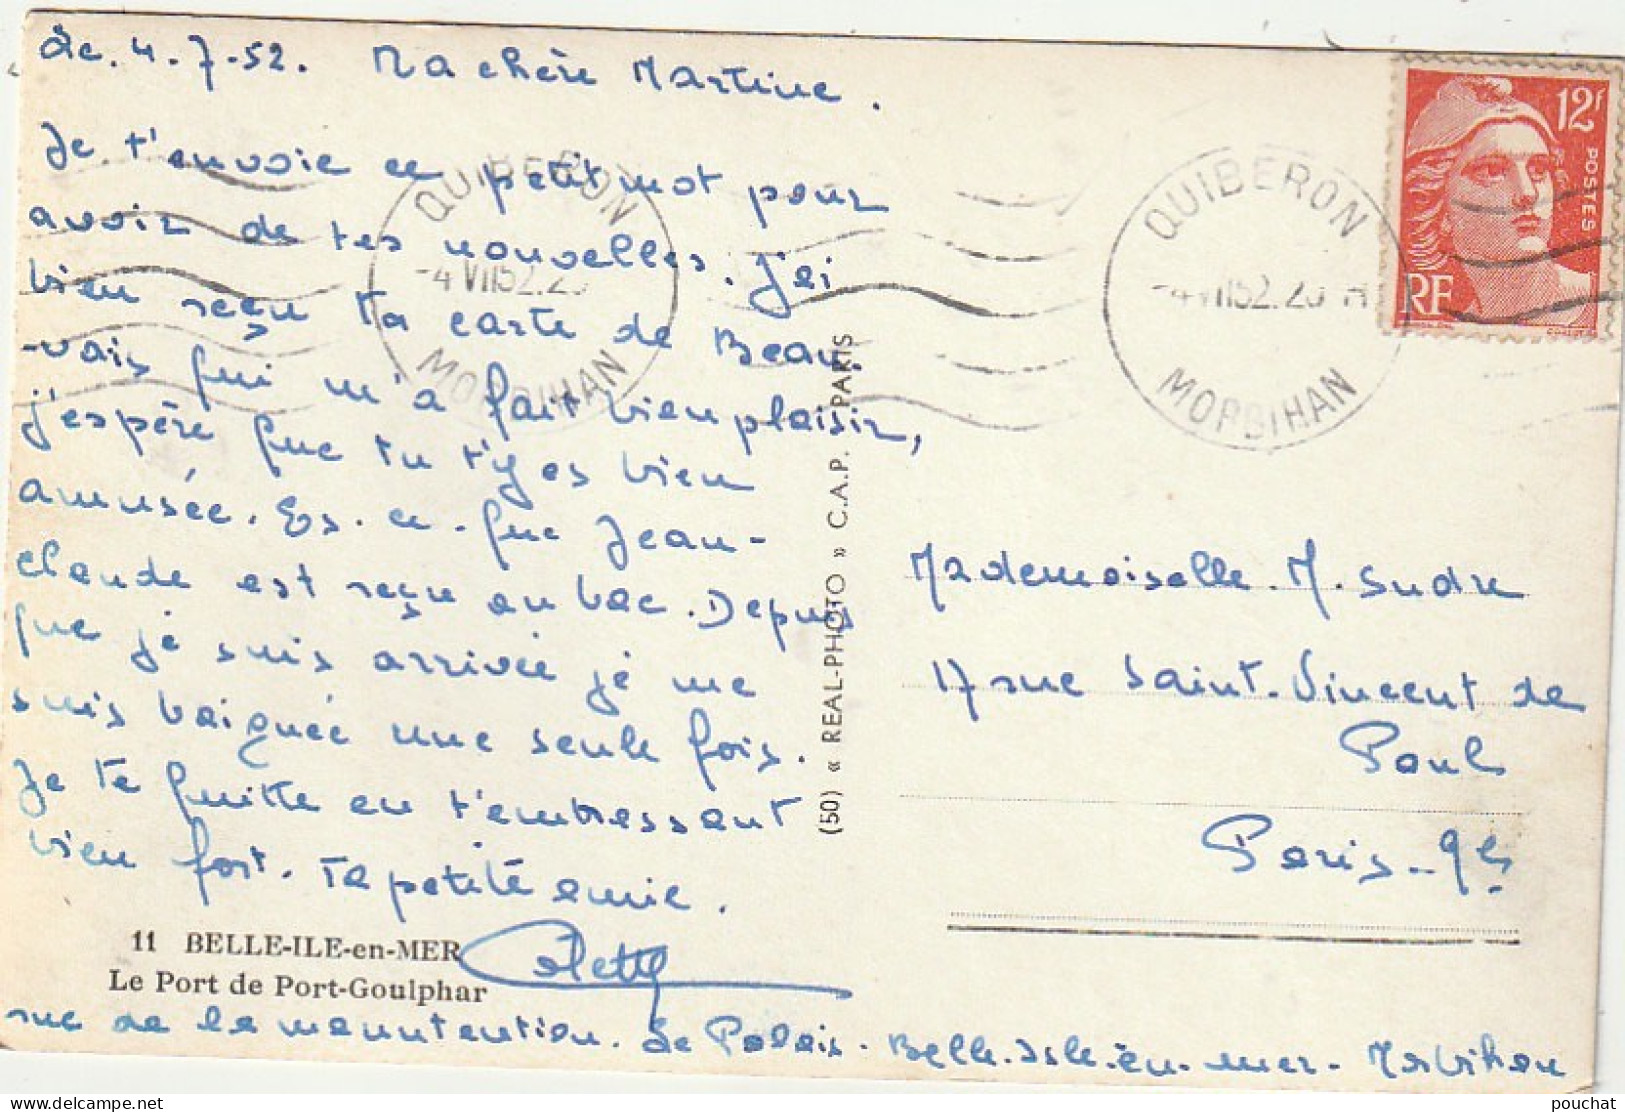 Le. 4-7-52. Ma chère Martine.
Je t'envoie ce petit mot pour
avoir de tes nouvelles. J'ai
bien reçu ta carte de Beau-
-vais qui m'a fait bien plaisir,
j'espère que tu t'y es bien
amusée. Es-ce-que Jean-
claude est reçu au bac. Depuis
que je suis arrivée je me
suis baignée une seule fois.
Je te quitte en t'embrassant
bien fort. Ta petite amie.
Colette
11 BELLE-ILE-en-MER
Le Port de Port-Goulphar
rue de la manutention. Le Palais - Belle-Isle-en-mer - Morbihan
(50) « REAL-PHOTO » C.A.P. PARIS
QUIBERON
-4 VII 52.20
MORBIHAN
QUIBERON
-4 VII 52.20 H
MORBIHAN
12F
POSTES
RF
Mademoiselle. M. Sudre
17 rue Saint-Vincent de
Paul
Paris-9e
pouchat